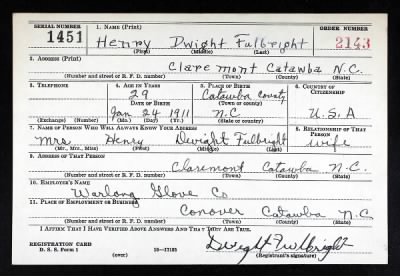 SERIAL NUMBER 1. NAME (Print) ORDER NUMBER
1451 Henry Dwight Fulbright 2143
(First) (Middle) (Last)
2. ADDRESS (Print)
Claremont Catawba N.C.
(Number and street or R. F. D. number) (Town) (County) (State)
3. TELEPHONE 4. AGE IN YEARS 5. PLACE OF BIRTH 6. COUNTRY OF CITIZENSHIP
29 Catawba County
DATE OF BIRTH (Town or county)
Jan 24 1911 N.C. U.S.A
(Exchange) (Number) (Mo.) (Day) (Yr.) (State or country)
7. NAME OF PERSON WHO WILL ALWAYS KNOW YOUR ADDRESS 8. RELATIONSHIP OF THAT PERSON
Mrs. Henry Dwight Fulbright wife
(Mr., Mrs., Miss) (First) (Middle) (Last)
9. ADDRESS OF THAT PERSON
Claremont Catawba N.C.
(Number and street or R. F. D. number) (Town) (County) (State)
10. EMPLOYER'S NAME
Warlong Glove Co
11. PLACE OF EMPLOYMENT OR BUSINESS
Conover Catawba N.C.
(Number and street or R. F. D. number) (Town) (County) (State)
I AFFIRM THAT I HAVE VERIFIED ABOVE ANSWERS AND THAT THEY ARE TRUE.
REGISTRATION CARD
D. S. S. Form 1 (over) 16—17105 Dwight Fulbright
(Registrant's signature)